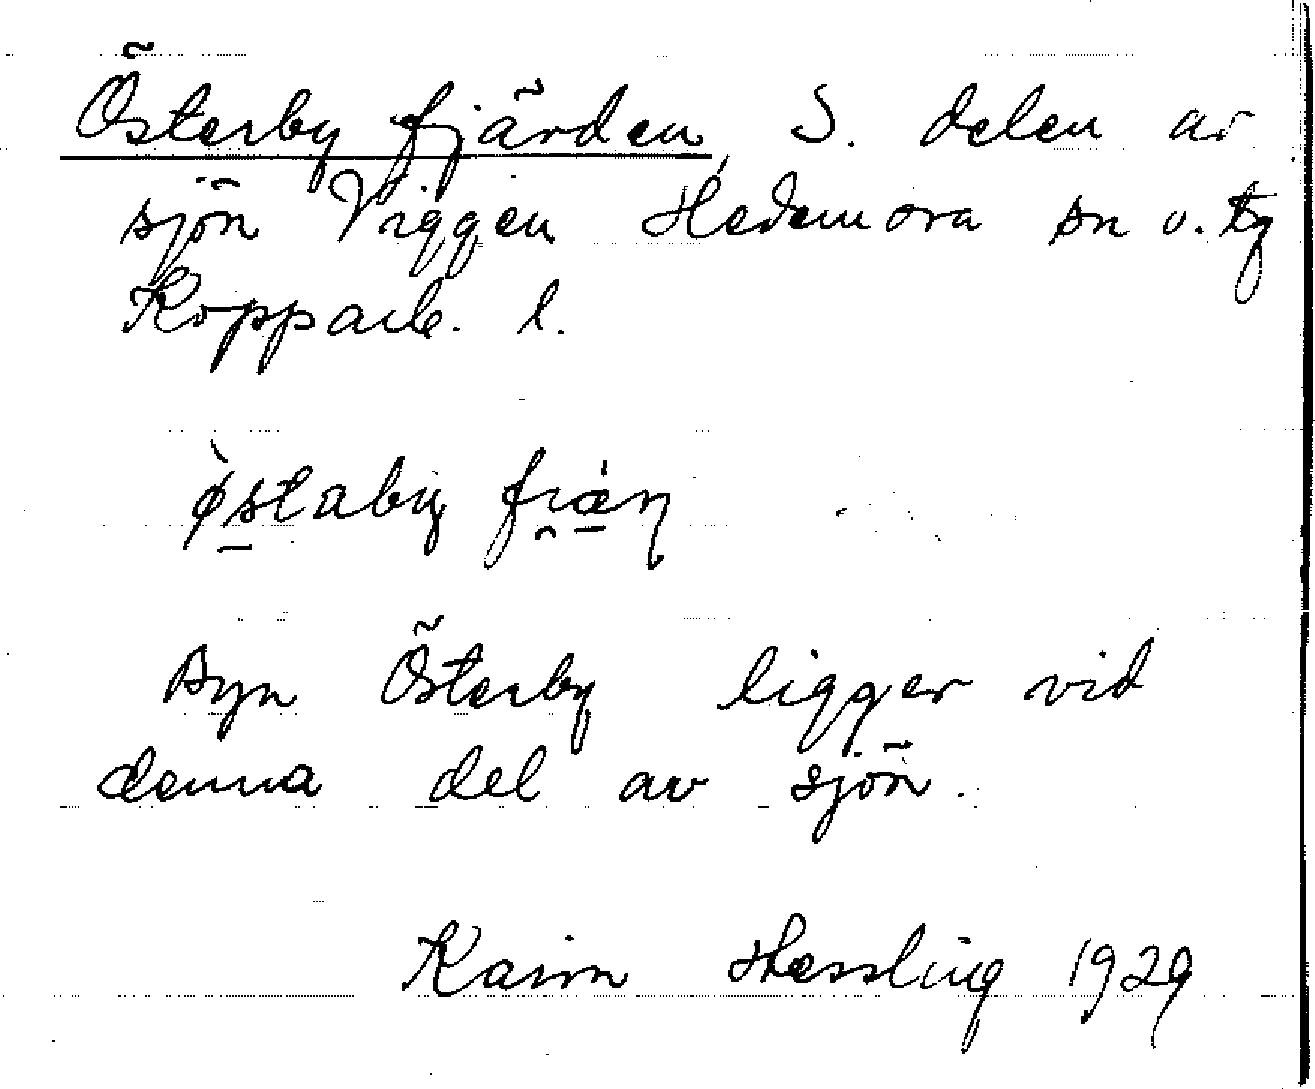 Österby fjärden, S. delen av
sjön Viggen Hedemora sn o. tg
Kopparb. l.
östaby
Byn Österby ligger vid
denna del av sjön.
Karin Hessling 1929